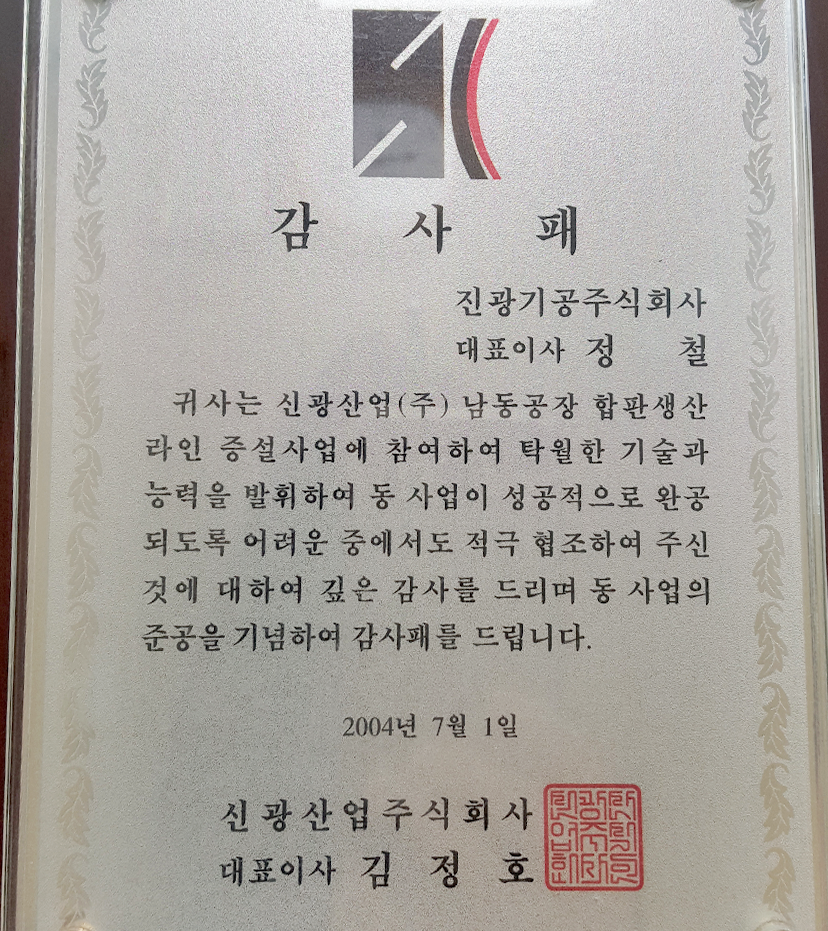 감 사 패
진광기공주식회사
대표이사 정 철
귀사는 신광산업(주) 남동공장 합판생산
라인 증설사업에 참여하여 탁월한 기술과
능력을 발휘하여 동 사업이 성공적으로 완공
되도록 어려운 중에서도 적극 협조하여 주신
것에 대하여 깊은 감사를 드리며 동 사업의
준공을 기념하여 감사패를 드립니다.
2004년 7월 1일
신광산업주식회사
대표이사 김 정 호